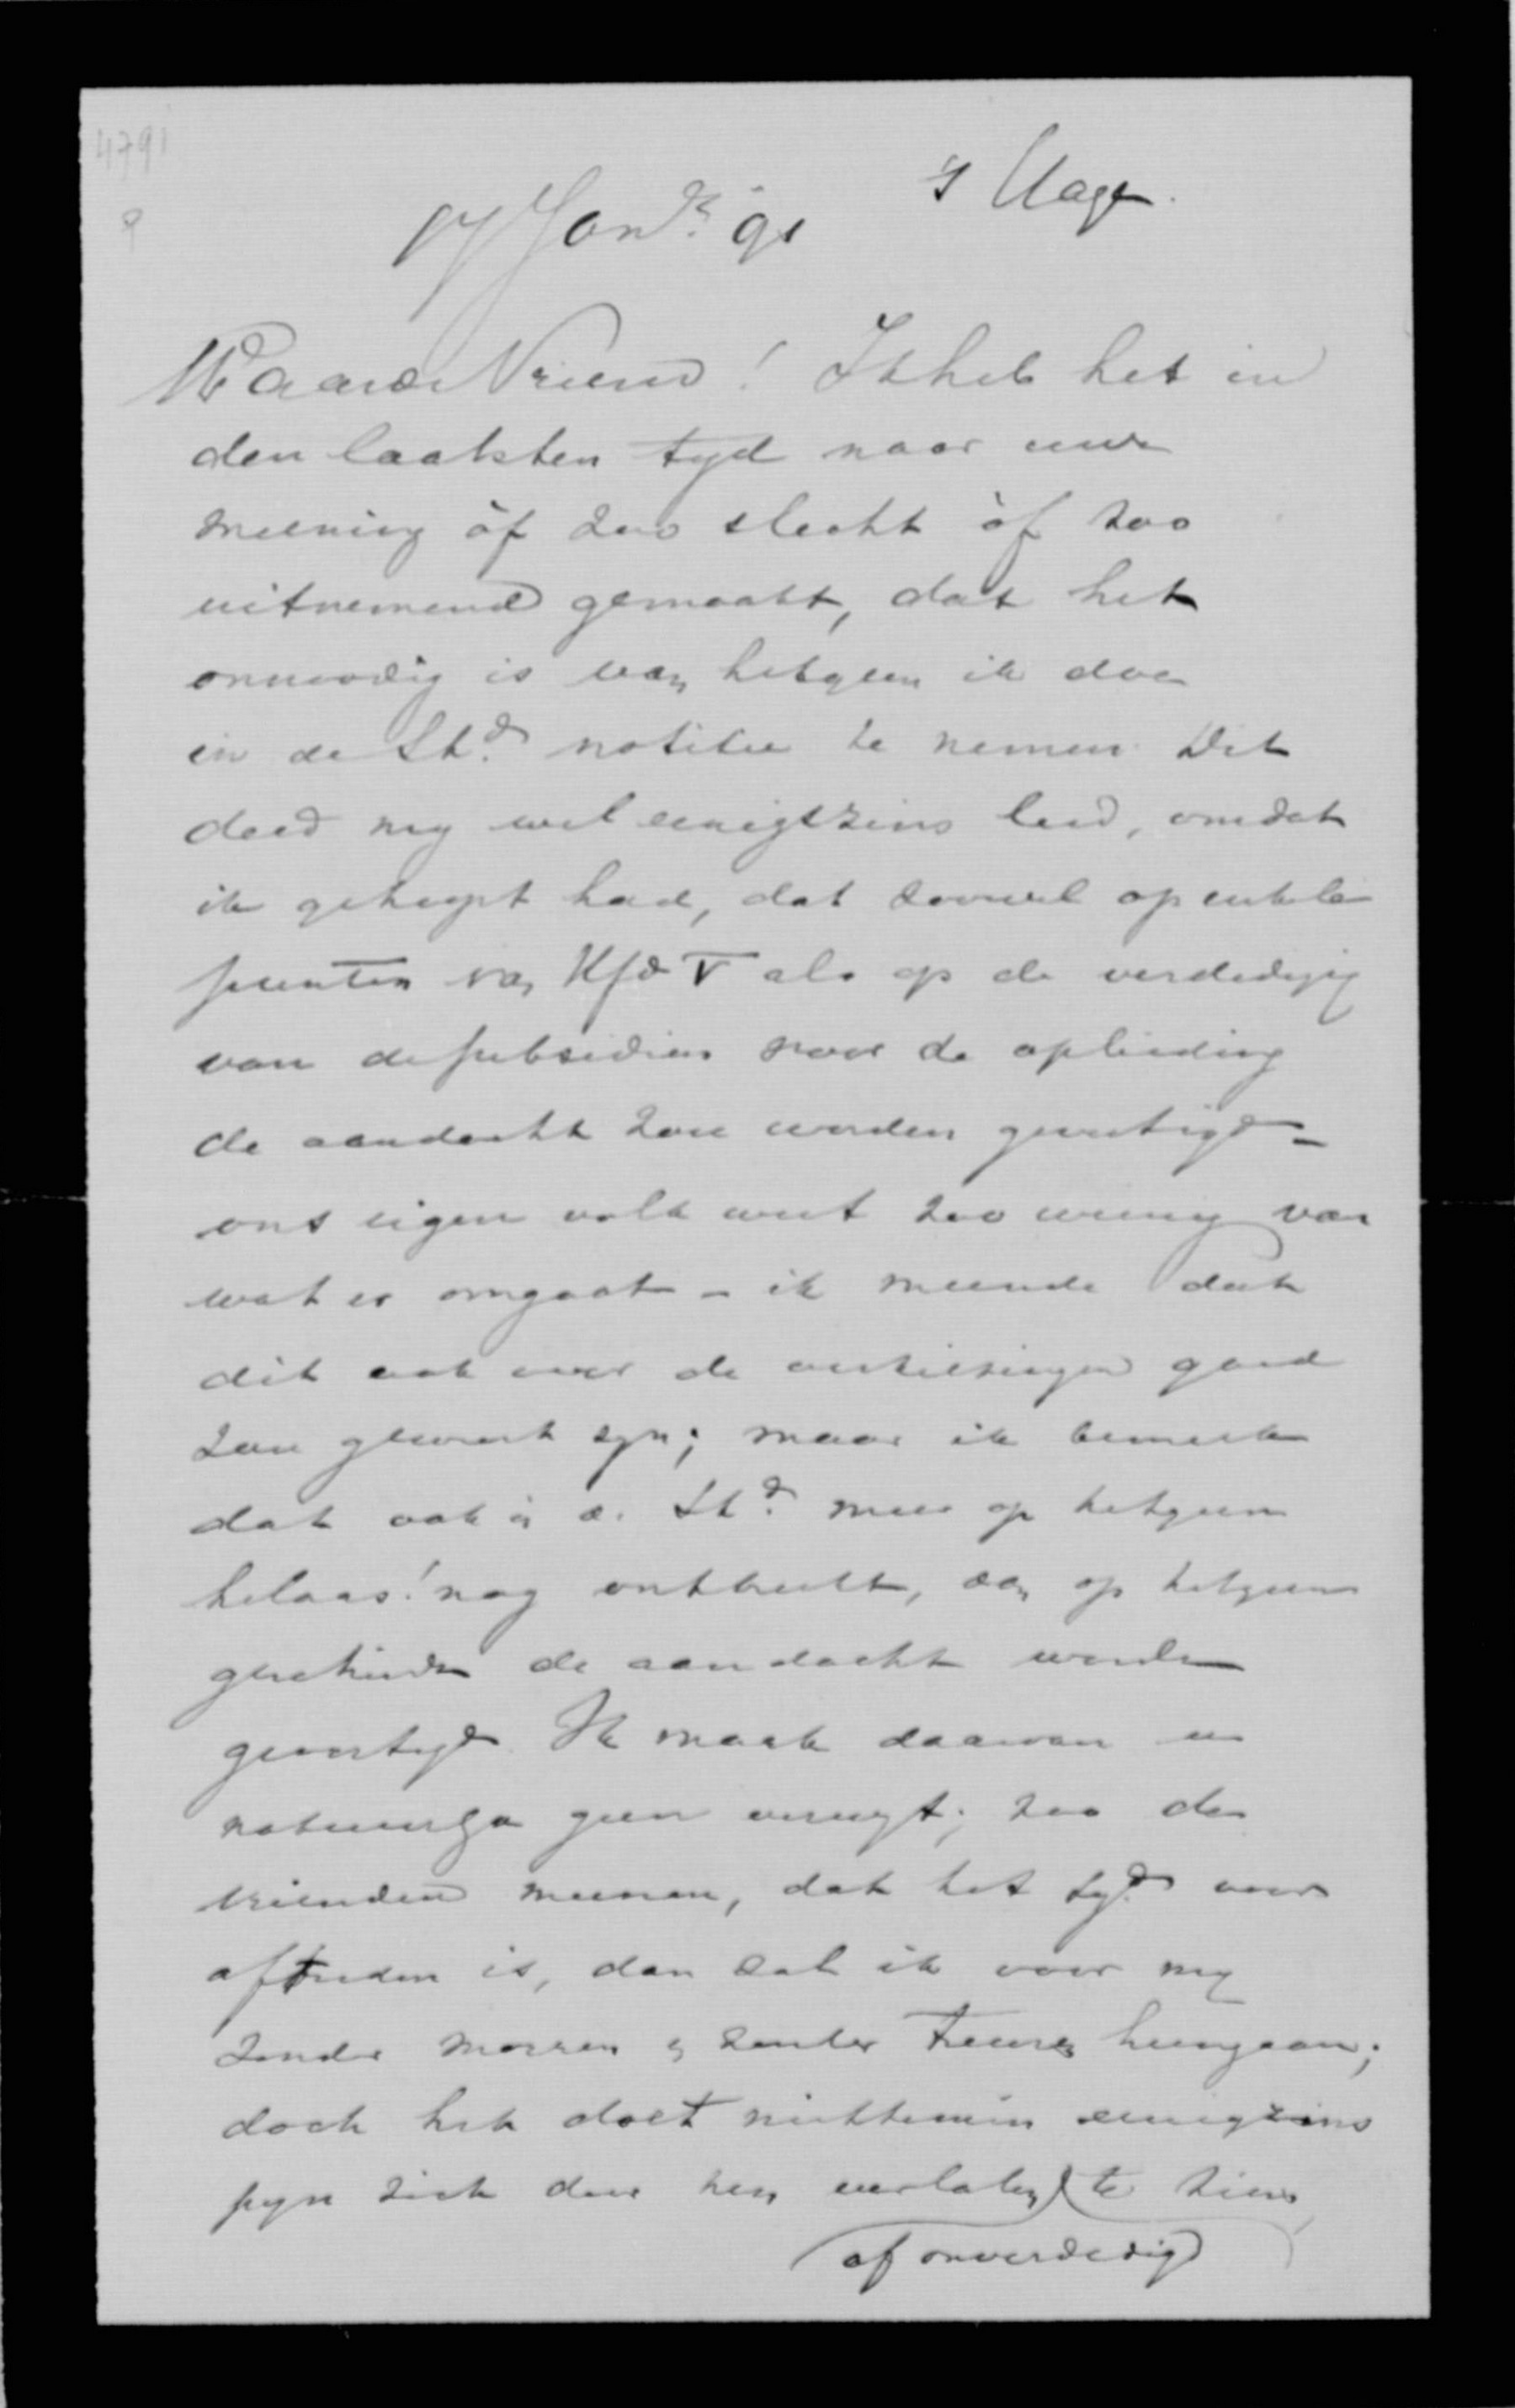 4791
's Hage.
17 Jan.r 91
Waarde Vriend! Ik heb het in
den laatsten tyd naar uwe
meening òf zoo slecht òf zoo
uitnemend gemaakt, dat het
onnoodig is van hetgeen ik doe
in de St.d notitie te nemen. Dit
deed my wel eenigszins leed, omdat
ik gehoopt had, dat zoowel op enkele
punten van Hfd V als op de verdediging
van de subsidien voor de opleiding
de aandacht zou worden gevestigd –
ons eigen volk weet zoo weinig van
wat er omgaat – ik meende dat
dit ook voor de verkiezingen goed
zou geweest zyn; maar ik bemerk
dat ook in d. St.d meer op hetgeen
helaas! nog ontbreekt, dan op hetgeen
geschiedde de aandacht worden
gevestigd. Ik maak daarvan u
natuurlyk geen verwyt; zoo de
vrienden meenen, dat het tyd voor
aftreden is, dan zal ik voor my
zonder morren & zonder treuren heengaan;
doch het doet niettemin eenigzins
pyn zich door hen verlaten te zien
of onverdedigd